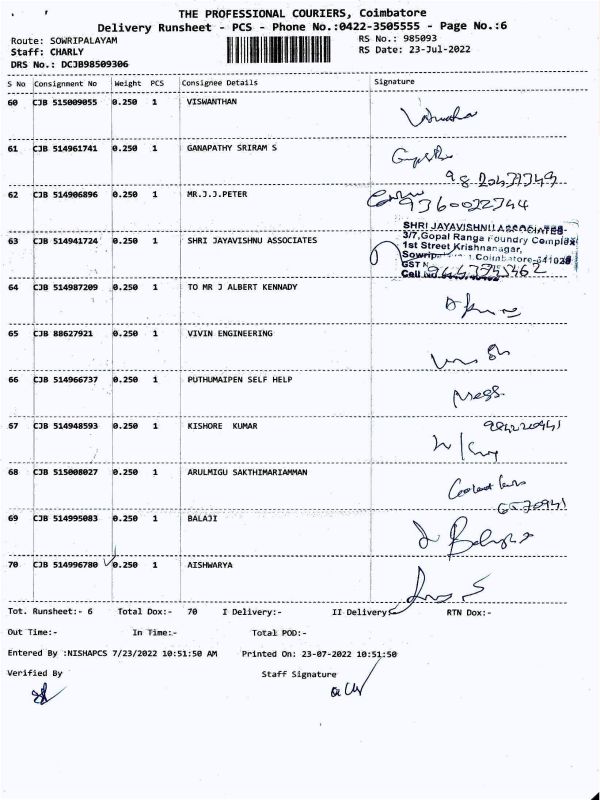 THE PROFESSIONAL COURIERS, Coimbatore
Delivery Runsheet - PCS - Phone No.:0422-3505555 - Page No.:6
Route: SOWRIPALAYAM RS No.: 985093
Staff: CHARLY RS Date: 23-Jul-2022
DRS No.: DCJB98509306
S No Consignment No Weight PCS Consignee Details Signature
60 CJB 515009055 0.250 1 VISWANTHAN
61 CJB 514961741 0.250 1 GANAPATHY SRIRAM S
62 CJB 514906896 0.250 1 MR.J.J.PETER
9360022344
SHRI JAYAVISHNU ASSOCIATES
3/7,Gopal Ranga Foundry Complex
63 CJB 514941724 0.250 1 SHRI JAYAVISHNU ASSOCIATES 1st Street Krishnanagar,
Coimbatore-641028
GST N
Cell No
64 CJB 514987209 0.250 1 TO MR J ALBERT KENNADY
65 CJB 88627921 0.250 1 VIVIN ENGINEERING
66 CJB 514966737 0.250 1 PUTHUMAIPEN SELF HELP
67 CJB 514948593 0.250 1 KISHORE KUMAR
68 CJB 515008027 0.250 1 ARULMIGU SAKTHIMARIAMMAN
69 CJB 514995083 0.250 1 BALAJI
70 CJB 514996780 0.250 1 AISHWARYA
Tot. Runsheet:- 6 Total Dox:- 70 I Delivery:- II Delivery: RTN Dox:-
Out Time:- In Time:- Total POD:-
Entered By :NISHAPCS 7/23/2022 10:51:50 AM Printed On: 23-07-2022 10:51:50
Verified By Staff Signature